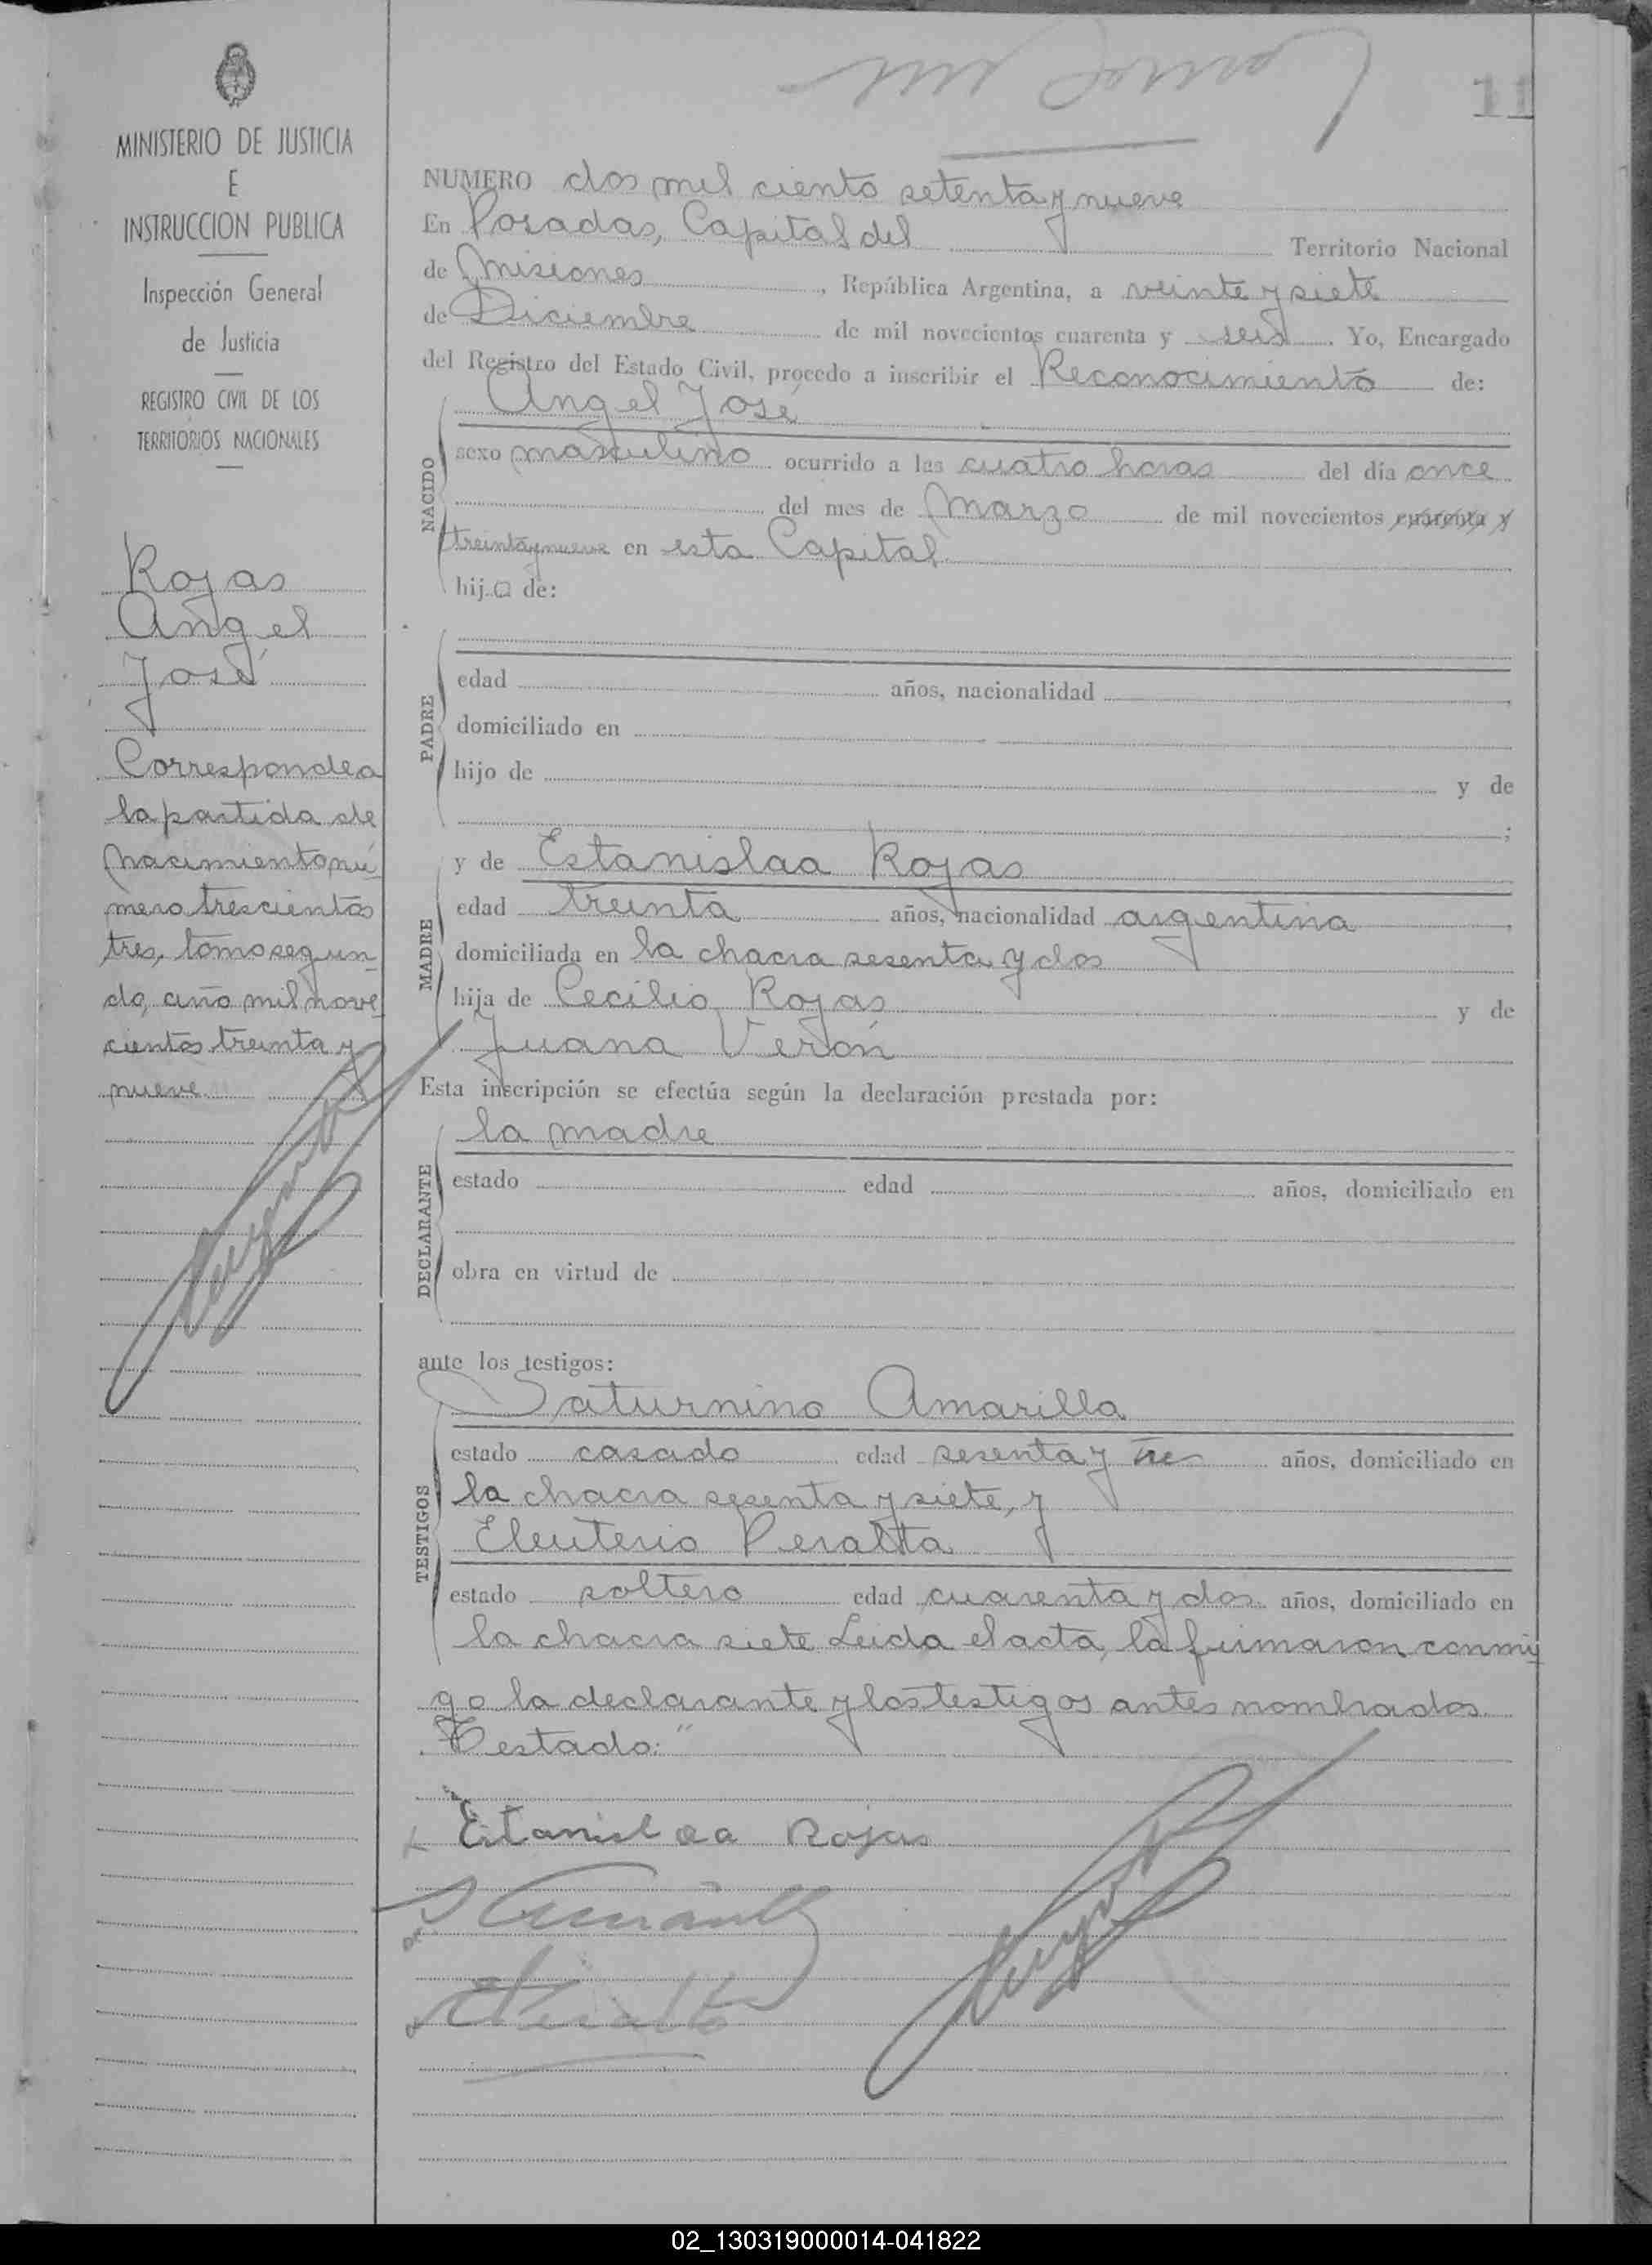 11
MINISTERIO DE JUSTICIA
E
INSTRUCCION PUBLICA
Inspección General
de Justicia
REGISTRO CIVIL DE LOS
TERRITORIOS NACIONALES
Rojas
Angel
José
Corresponde a
la partida de
nacimiento nú
mero trescientos
tres, tomo segun
do, año mil nove
cientos treinta y
nueve
NUMERO dos mil ciento setenta y nueve
En Posadas, Capital del Territorio Nacional
de Misiones, República Argentina, a veinte y siete
de Diciembre de mil novecientos cuarenta y seis. Yo, Encargado
del Registro del Estado Civil, procedo a inscribir el Reconocimiento de:
NACIDO
Angel José
sexo masculino ocurrido a las cuatro horas del día once
del mes de Marzo de mil novecientos cuarenta y
treinta y nueve en esta Capital
hijo de:
PADRE
edad años, nacionalidad
domiciliado en
hijo de y de
;
MADRE
y de Estanislaa Rojas
edad treinta años, nacionalidad argentina
domiciliada en la chacra sesenta y dos
hija de Cecilio Rojas y de
Juana Verón
Esta inscripción se efectúa según la declaración prestada por:
DECLARANTE
la madre
estado edad años, domiciliado en
obra en virtud de
ante los testigos:
TESTIGOS
Saturnino Amarilla
estado casado edad sesenta y tres años, domiciliado en
la chacra sesenta y siete, y
Eleuterio Peralta
estado soltero edad cuarenta y dos años, domiciliado en
la chacra siete Leida el acta, la firmaron conmi
go la declarante y los testigos antes nombrados.
Testado: "
Estanislaa Rojas
02_130319000014-041822